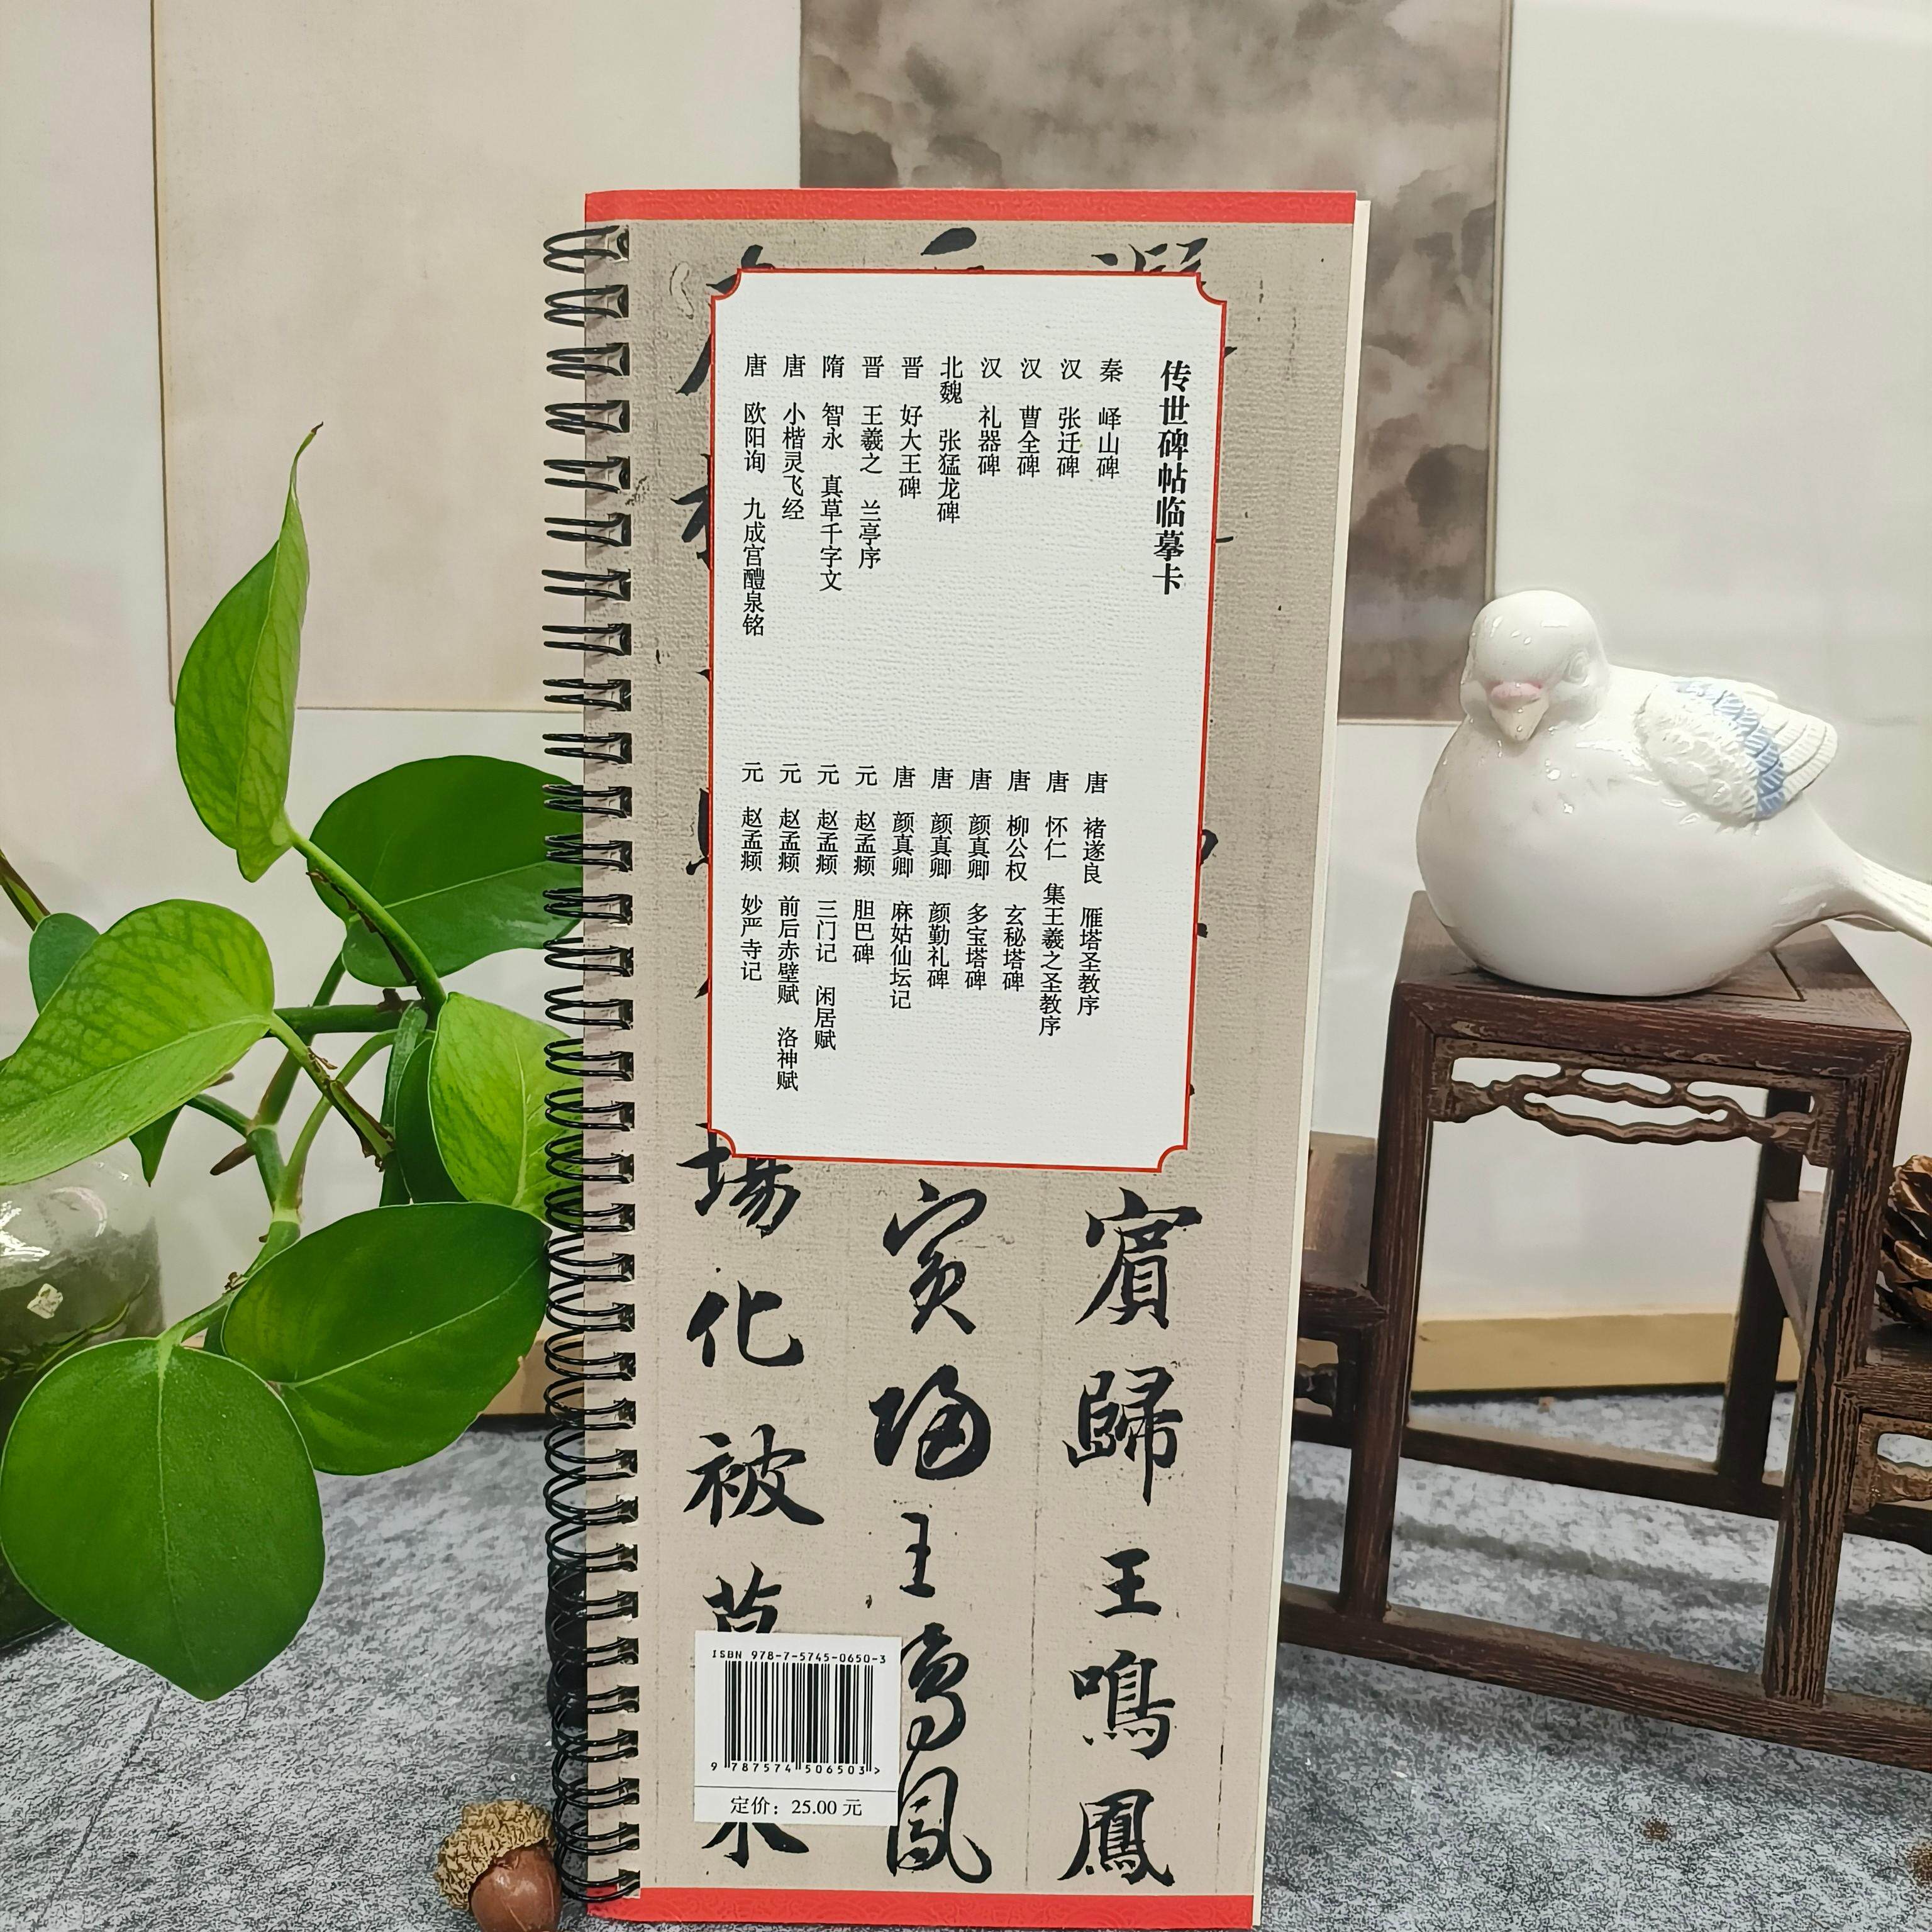 传世碑帖临摹卡
秦 峄山碑
汉 张迁碑
汉 曹全碑
汉 礼器碑
北魏 张猛龙碑
晋 好大王碑
晋 王羲之 兰亭序
隋 智永 真草千字文
唐 小楷灵飞经
唐 欧阳询 九成宫醴泉铭
唐 褚遂良 雁塔圣教序
唐 怀仁 集王羲之圣教序
唐 柳公权 玄秘塔碑
唐 颜真卿 多宝塔碑
唐 颜真卿 颜勤礼碑
唐 颜真卿 麻姑仙坛记
元 赵孟頫 胆巴碑
元 赵孟頫 三门记 闲居赋
元 赵孟頫 前后赤壁赋 洛神赋
元 赵孟頫 妙严寺记
賓歸王鳴鳳
賓歸王鳴鳳
場化被草木
ISBN 978-7-5745-0650-3
9 787574 506503 >
定价：25.00 元